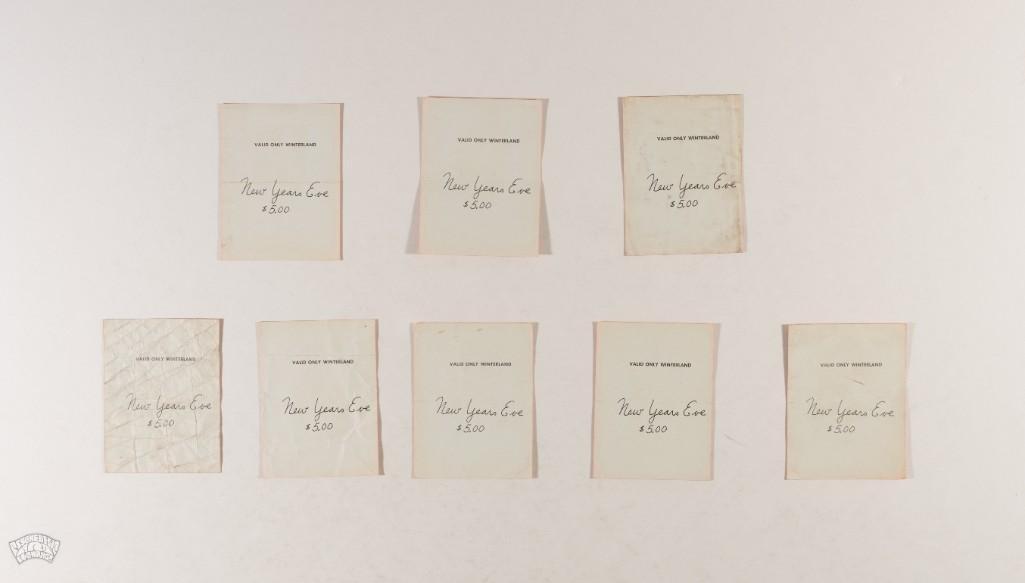 VALID ONLY WINTERLAND
New Years Eve
$5.00
VALID ONLY WINTERLAND
New Years Eve
$5.00
VALID ONLY WINTERLAND
New Years Eve
$5.00
VALID ONLY WINTERLAND
New Years Eve
$5.00
VALID ONLY WINTERLAND
New Years Eve
$5.00
VALID ONLY WINTERLAND
New Years Eve
$5.00
VALID ONLY WINTERLAND
New Years Eve
$5.00
VALID ONLY WINTERLAND
New Years Eve
$5.00